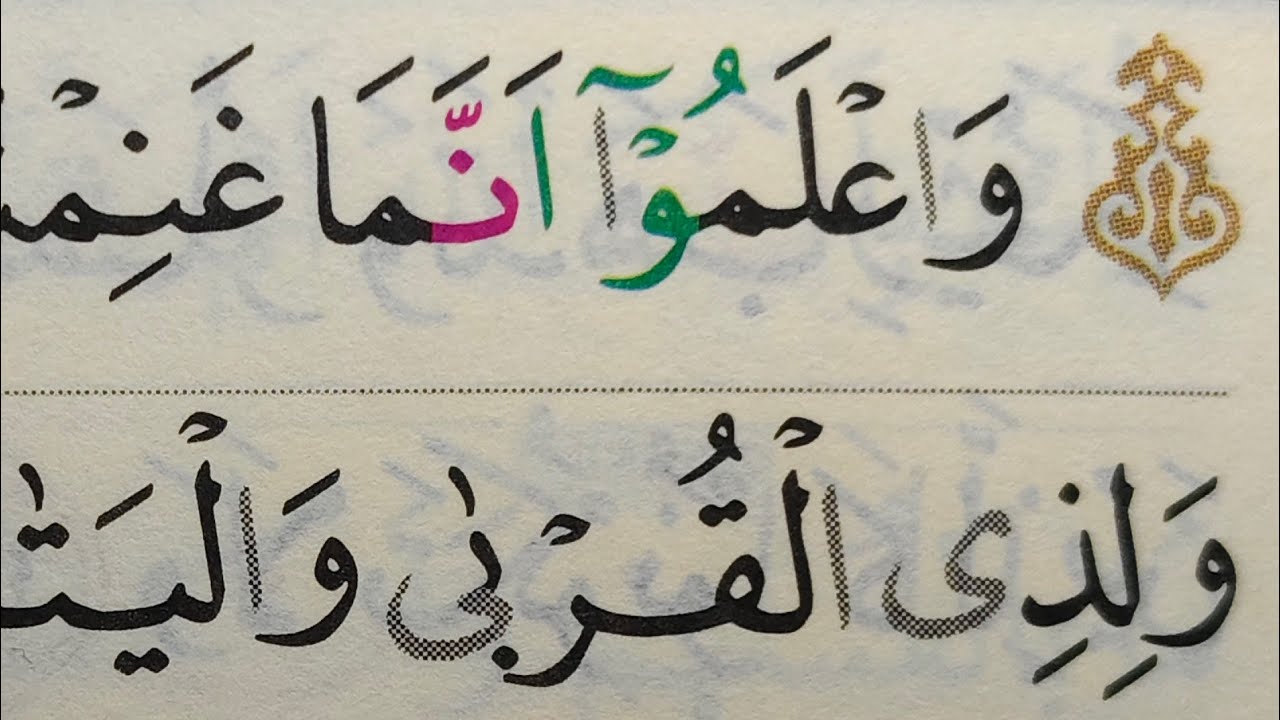 وَاعْلَمُوْۤا اَنَّمَا غَنِمْ
وَلِذِى الْقُرْبٰى وَالْيَتٰ